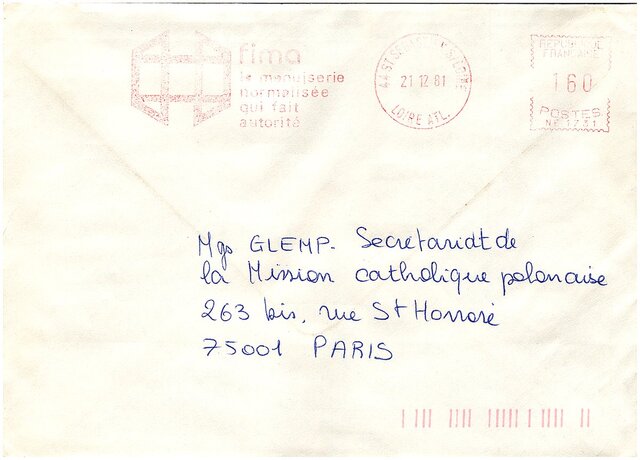 fima
la menuiserie
normalisée
qui fait
autorité
44 ST SEBASTIEN S/LOIRE
21 12 81
LOIRE ATL.
REPUBLIQUE
FRANCAISE
160
POSTES
Mgr GLEMP. Secretariat de
la Mission catholique polonaise
263 bis, rue St Honoré
75001 PARIS